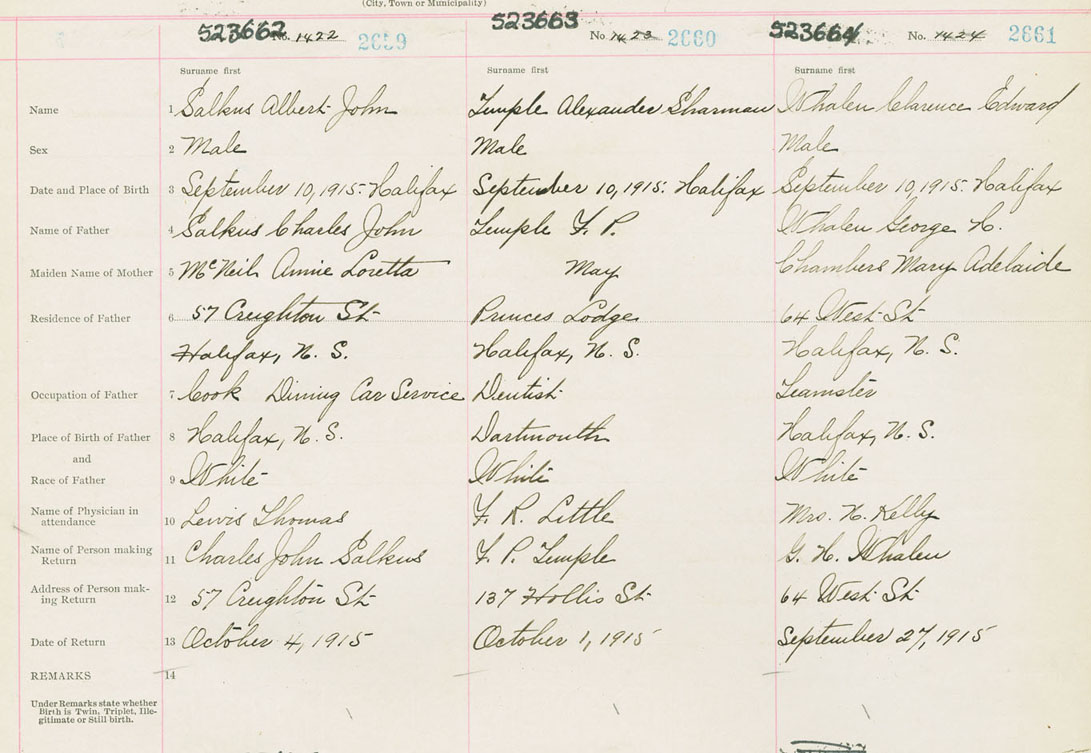 (City, Town or Municipality)
523662 No. 1422 2659 523663 No. 1423 2660 523664 No. 1424 2661
Surname first Surname first Surname first
Name 1 Salkus Albert John Temple Alexander Sharman Whalen Clarence Edward
Sex 2 Male Male Male
Date and Place of Birth 3 September 10, 1915: Halifax September 10, 1915: Halifax September 10, 1915: Halifax
Name of Father 4 Salkus Charles John Temple F. P. Whalen George H.
Maiden Name of Mother 5 McNeil Annie Loretta May Chambers Mary Adelaide
Residence of Father 6 57 Creighton St Princes Lodge 64 West St
Halifax, N. S. Halifax, N. S. Halifax, N. S.
Occupation of Father 7 Cook Dining Car Service Dentist Teamster
Place of Birth of Father 8 Halifax, N. S. Dartmouth Halifax, N. S.
and
Race of Father 9 White White White
Name of Physician in
attendance 10 Lewis Thomas F. R. Little Mrs. H. Kelly
Name of Person making
Return 11 Charles John Salkus F. P. Temple G. H. Whalen
Address of Person mak-
ing Return 12 57 Creighton St 137 Hollis St 64 West St
Date of Return 13 October 4, 1915 October 1, 1915 September 27, 1915
REMARKS 14
Under Remarks state whether
Birth is Twin, Triplet, Ille-
gitimate or Still birth.